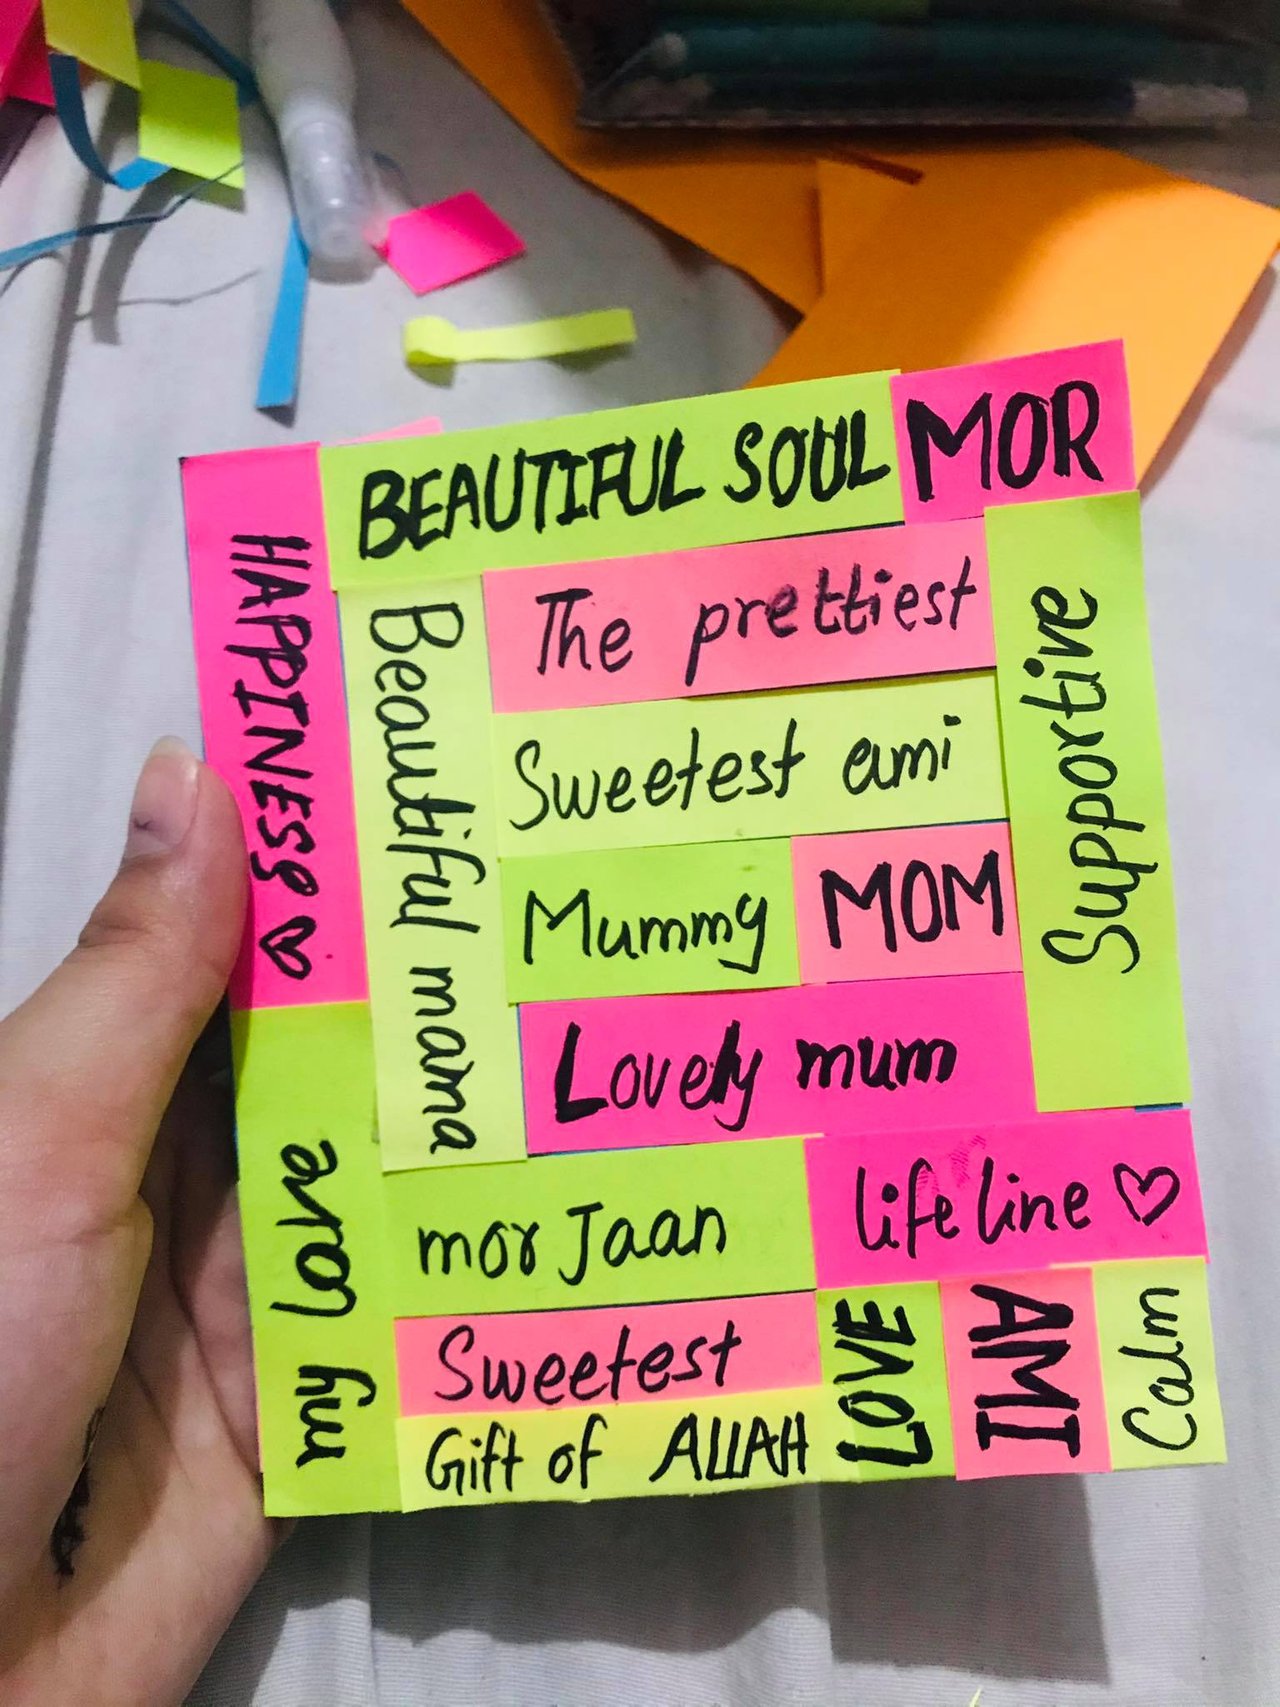 BEAUTIFUL SOUL
MOR
HAPPINESS
The prettiest
Beautiful mama
Supportive
Sweetest ami
Mummy
MOM
Lovely mum
my love
mor Jaan
life line
Sweetest
LOVE
AMI
Calm
Gift of ALLAH